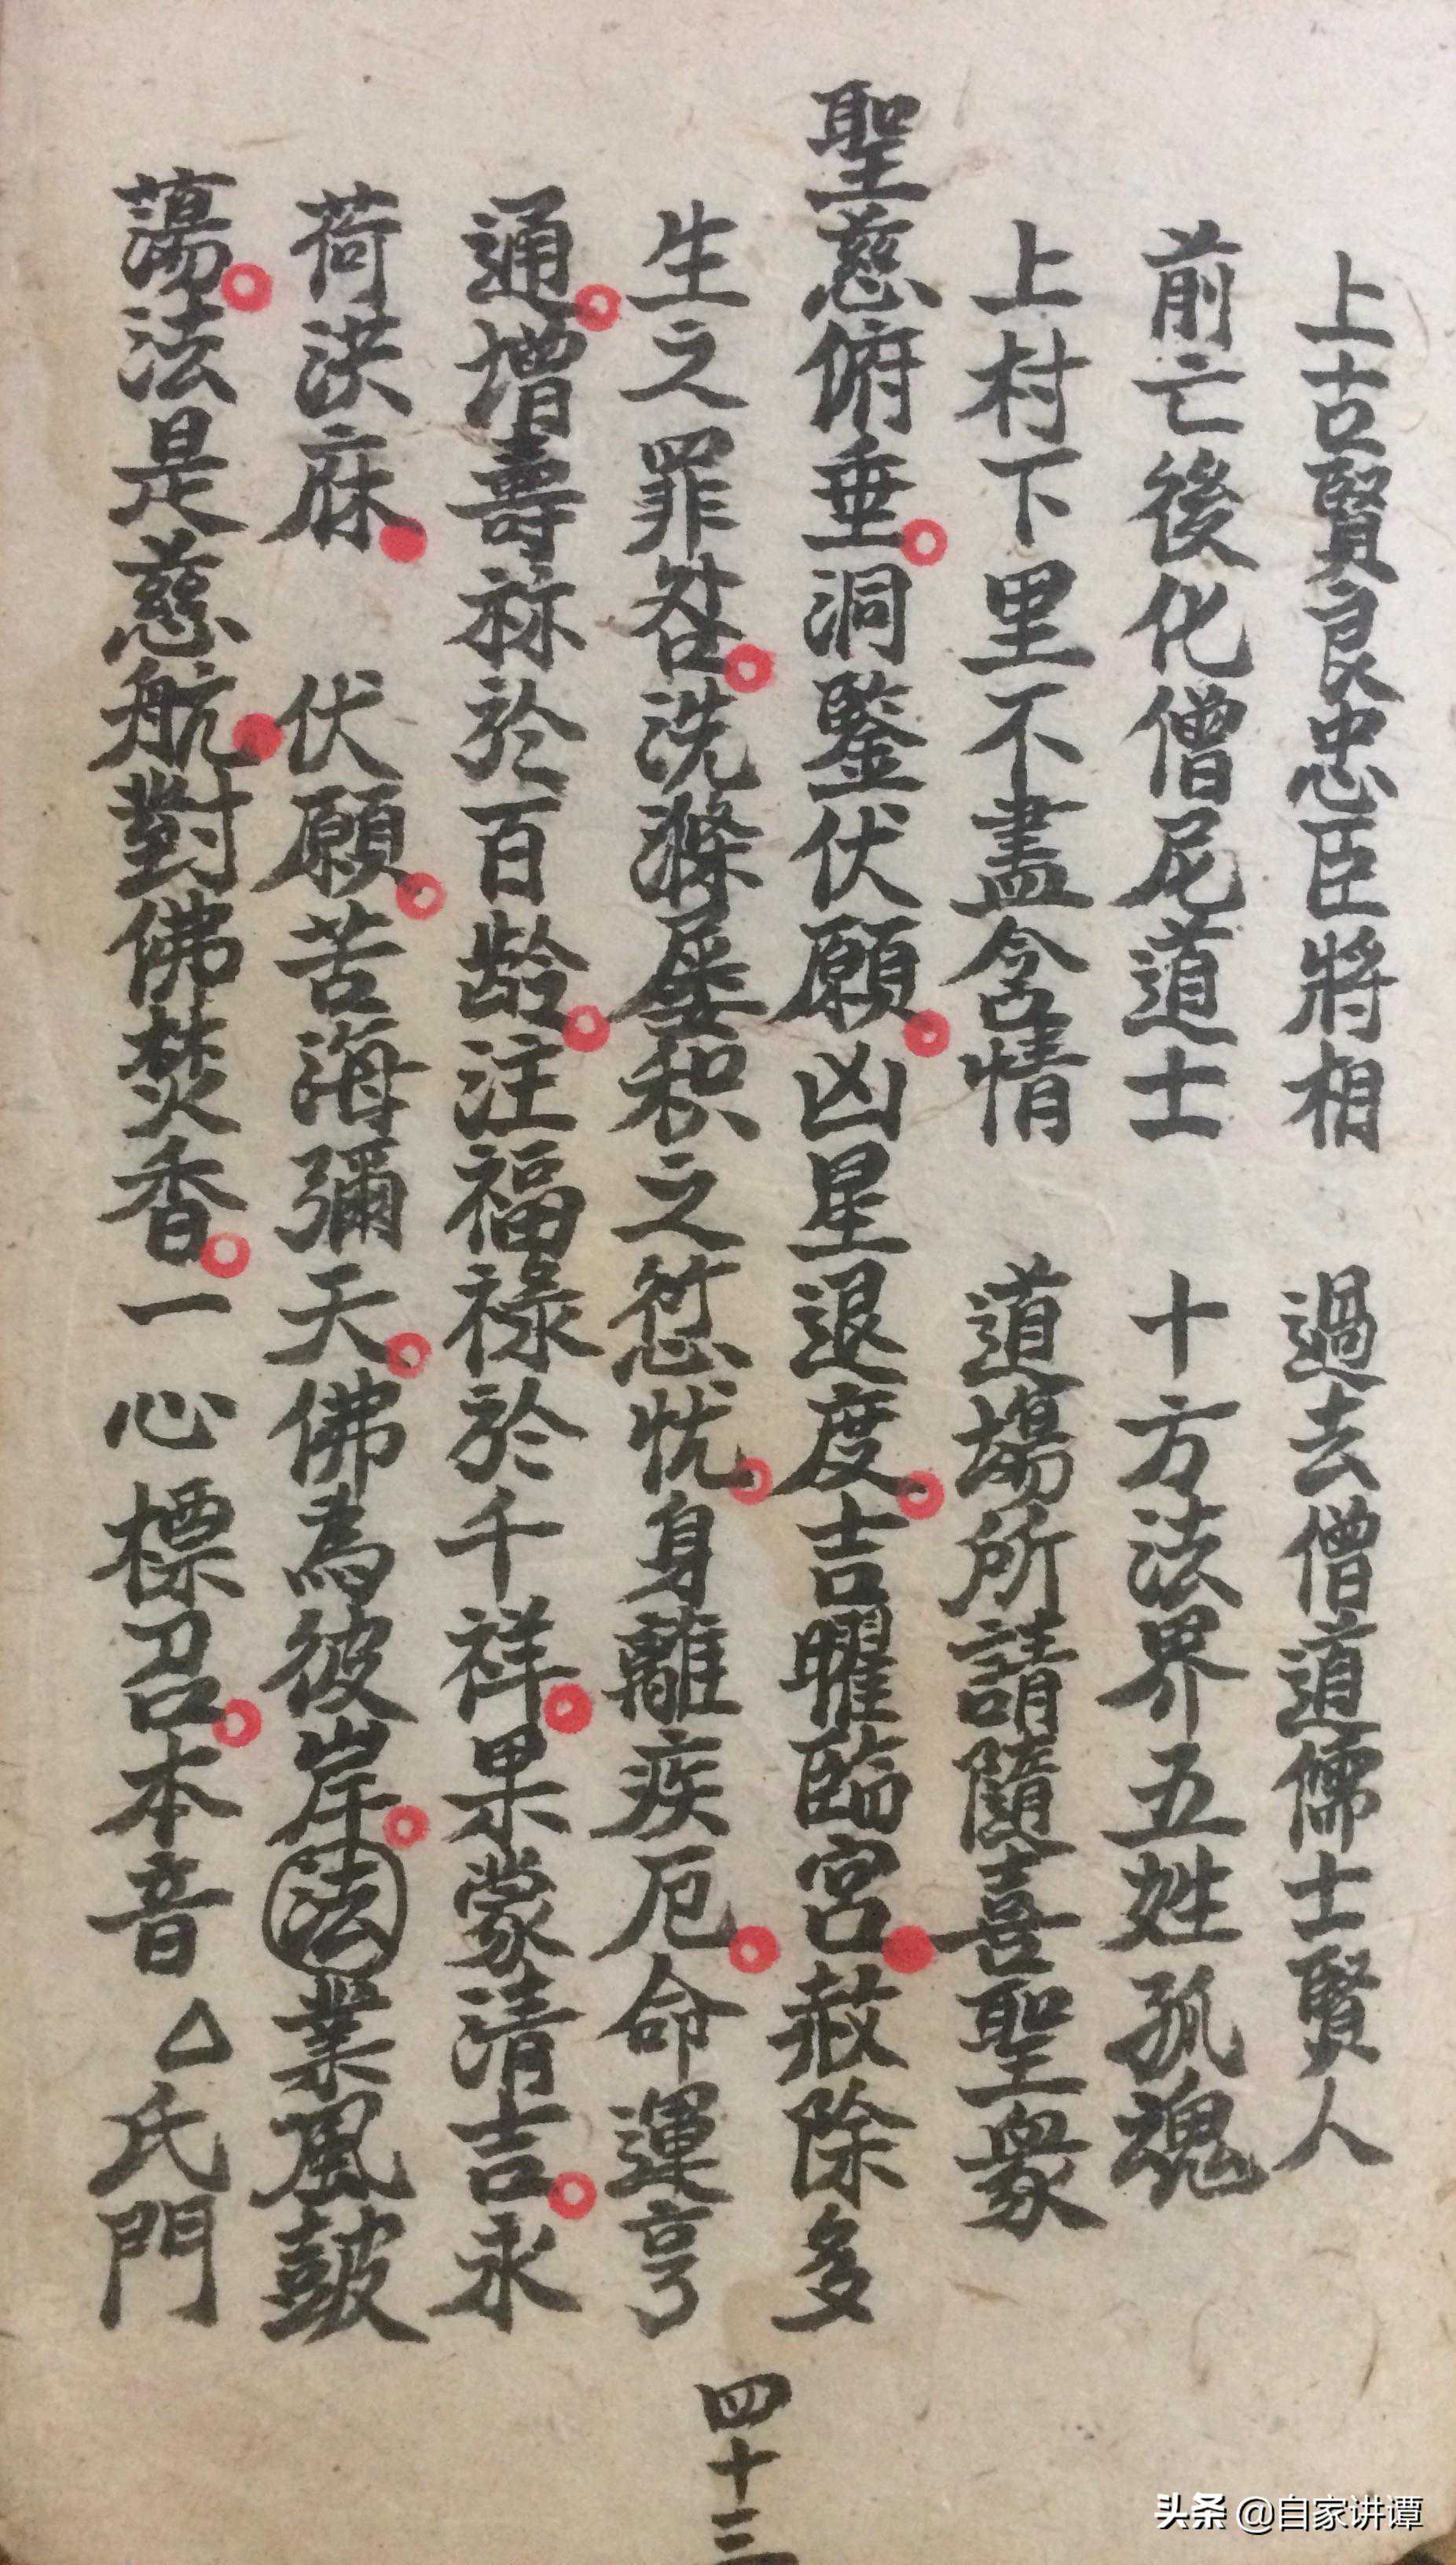 上古賢良忠臣將相　過去僧道儒士賢人
前亡後化僧尼道士　十方法界五姓孤魂
上村下里不盡含情　道場所請隨喜聖衆
聖慈俯垂。洞鑒伏願。凶星退度。吉曜臨宮。赦除多
生之罪咎。洗滌屡积之愆忧。身離疾厄。命運亨
通。增壽祢於百龄。注福禄於千祥。果蒙清吉。永
荷洪庥。　伏願。苦海彌天。佛為彼岸。法業風鼓
蕩。法是慈航。對佛焚香。一心標召。本音△氏門
四十三
头条 @自家讲谭